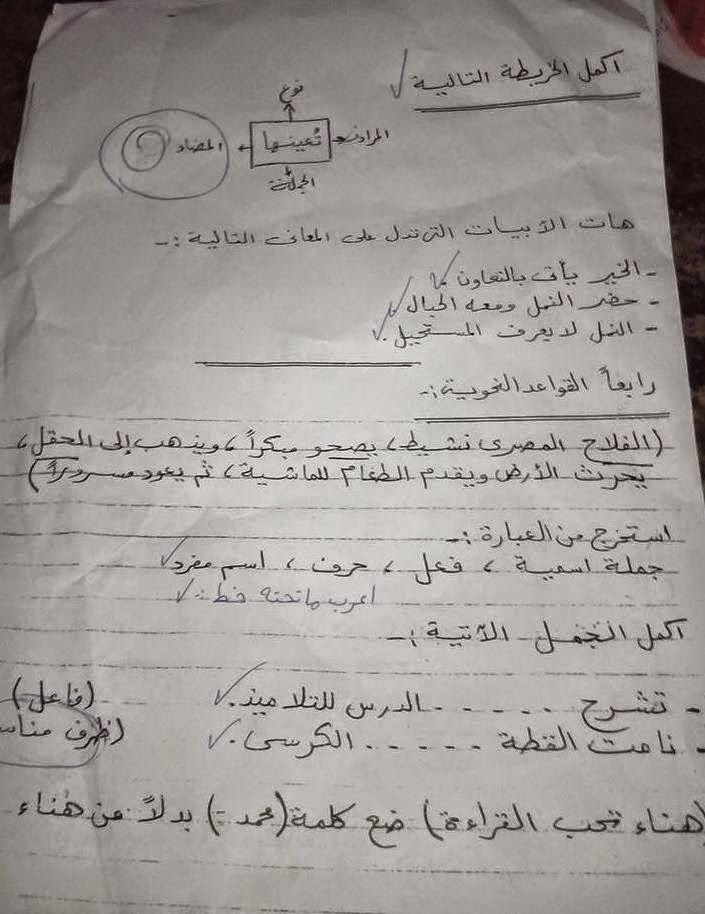 اكمل الخريطة التالية
نوع
المرادف
تعينها
المضاد
الجملة
هات الأبيات التى تدل على المعانى التالية :-
- الخير يأتى بالتعاون
- حضر النمل ومعه الحبال
- النمل لا يعرف المستحيل .
رابعاً القواعد النحوية :-
(الفلاح المصرى نشيط ، يصحو مبكراً ، ويذهب إلى الحقل ،
يحرث الأرض ويقدم الطعام للماشية ، ثم يعود مسروراً)
استخرج من العبارة :-
جملة اسمية ، فعل ، حرف ، اسم مفرد
اعرب ما تحته خط :
اكمل الجمل الآتية :-
- تشرح . . . . . الدرس للتلاميذ . (فاعل)
- نامت القطة . . . . . الكرسى . (ظرف مناس
(هناء تحب القراءة) ضع كلمة (محمد) بدلاً من هناء